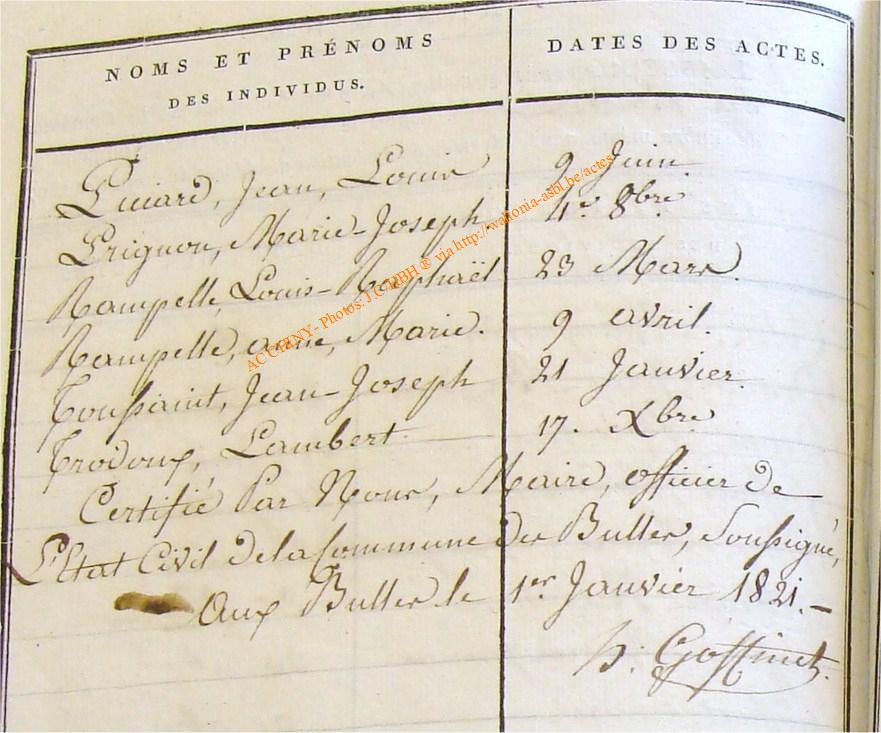 NOMS ET PRÉNOMS
DES INDIVIDUS.
DATES DES ACTES.
Jean, Louis 9 Juin.
Prignon, Marie-Joseph 4 8bre
Rampelle, Louis-Raphaël 23 Mars.
Rampelle, anne, Marie. 9 avril.
Toussaint, Jean-Joseph 21 Janvier.
Trodoux, Lambert 17. Xbre
Certifié Par Nous, Maire, officier de
L'Etat Civil de la Commune des Bulles, Soussigné,
Aux Bulles le 1er Janvier 1821.-
h. Goffinet.
ACCHENY- Photos: J.C. MBH ® via http://wallonia-asbl.be/actes